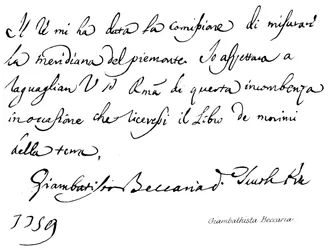 Il U mi ha data la comissione di misurari
la meridiana del piemonte. Io aspettava a
di questa incombenza
in occasione che ricevessi il libro de
della terra.
Giambatista Beccaria d.
1759
Giambattista Beccaria